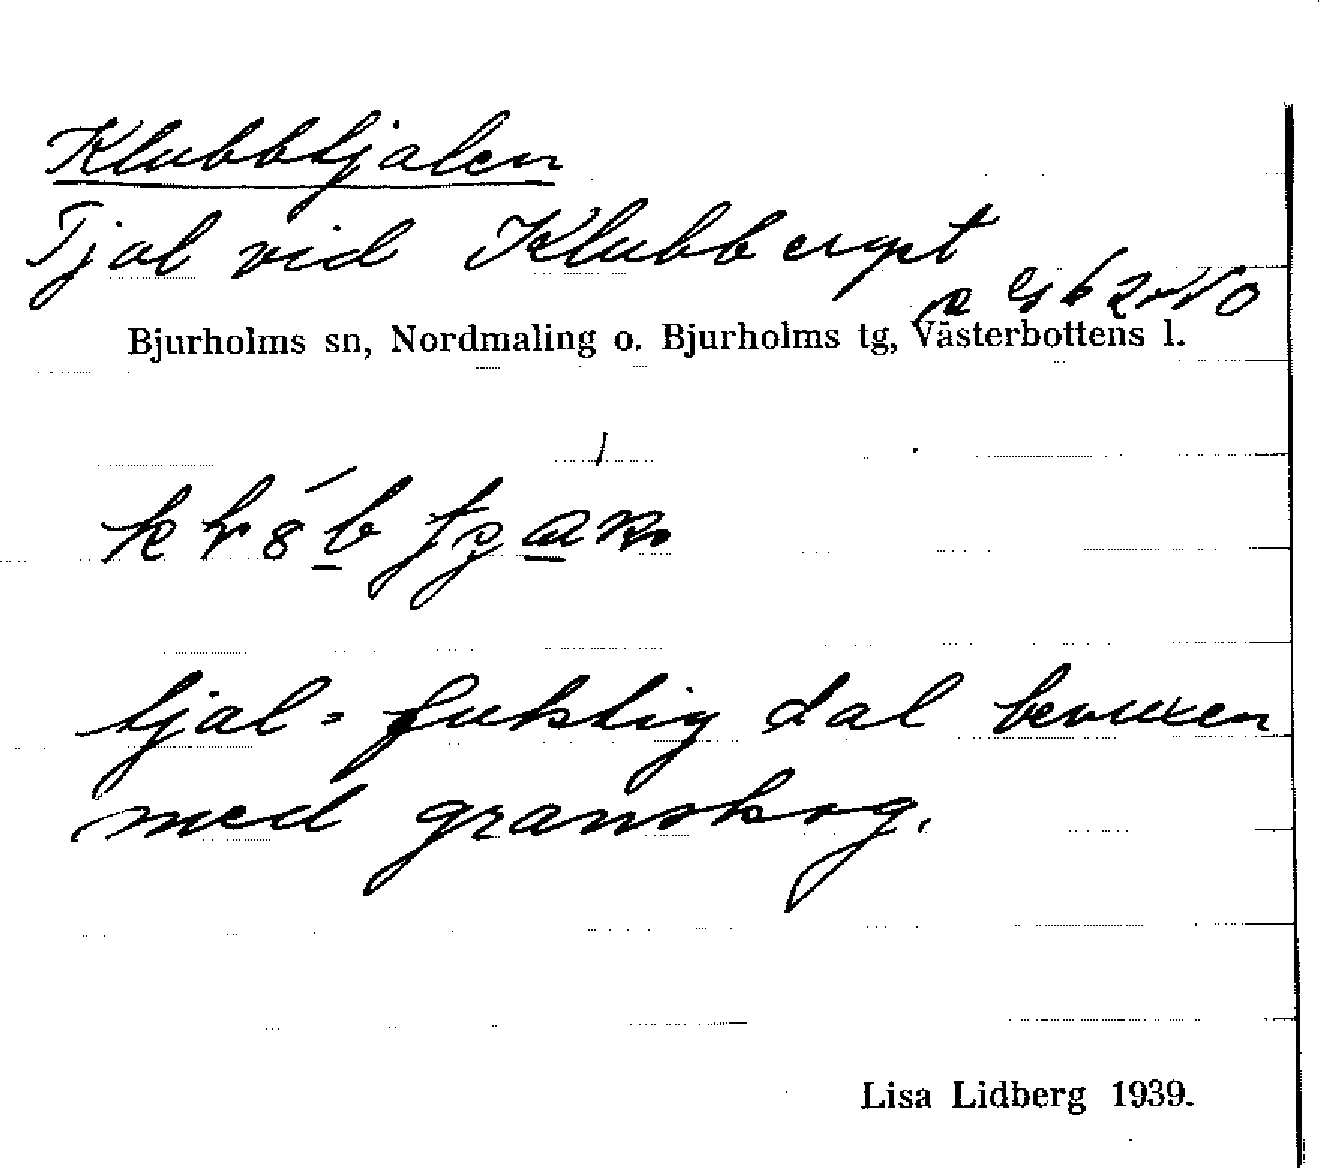 Klubbtjalen
Tjal vid Klubberget
Bjurholms sn, Nordmaling o. Bjurholms tg, Västerbottens l.
tjal = fuktig dal bevuxen
med granskog.
Lisa Lidberg 1939.